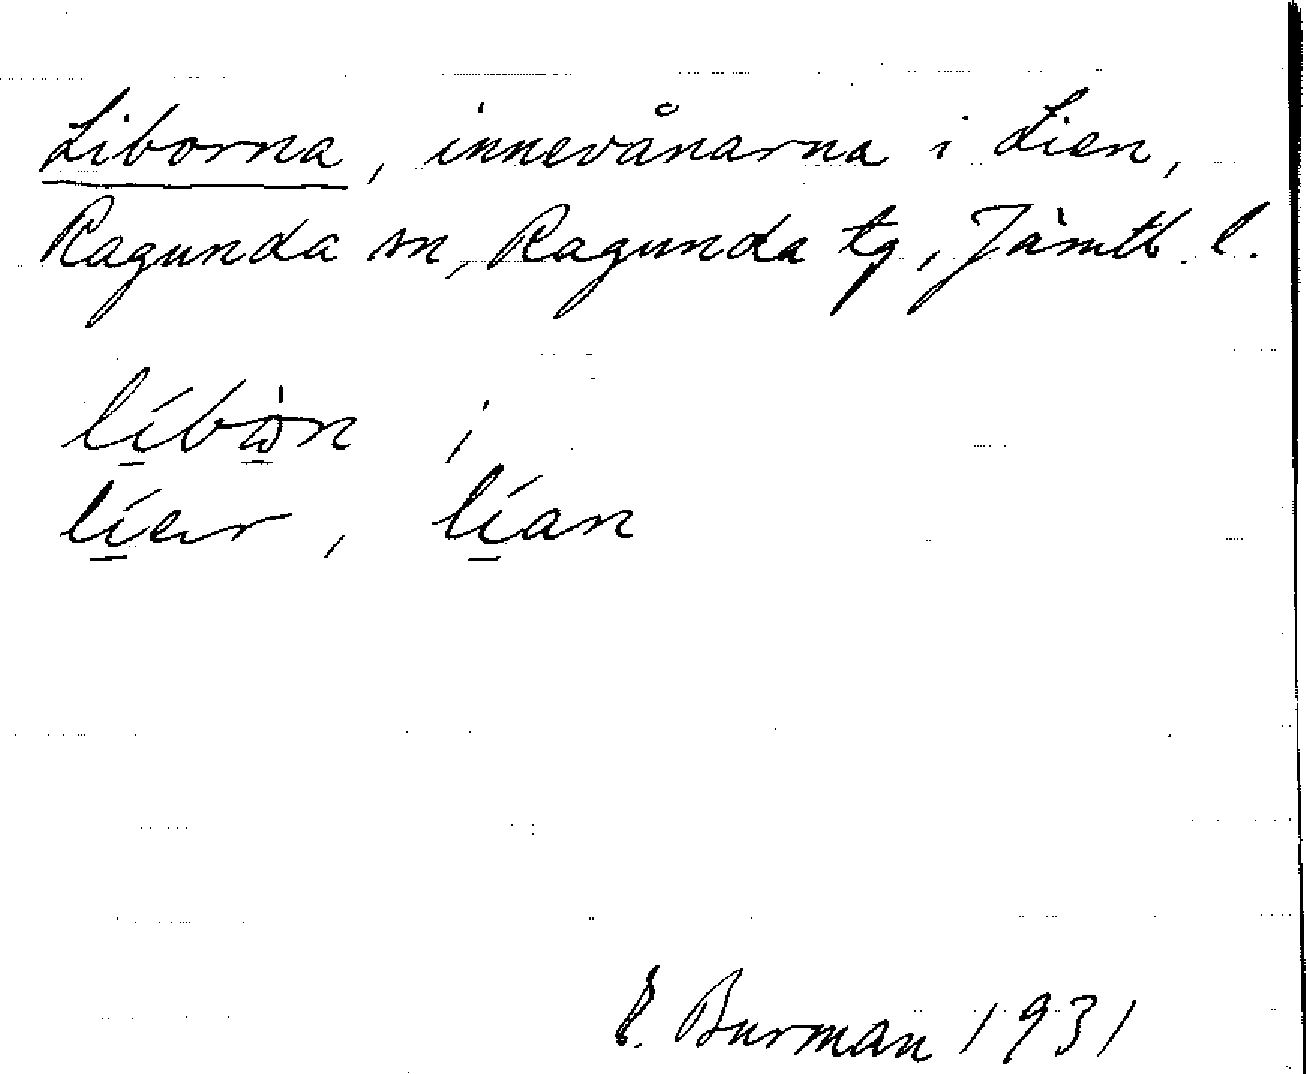 Liborna, innevånarna i Lien,
Ragunda sn, Ragunda tg, Jämtl. l.
líbòn ;
líer, lían
E. Burman 1931